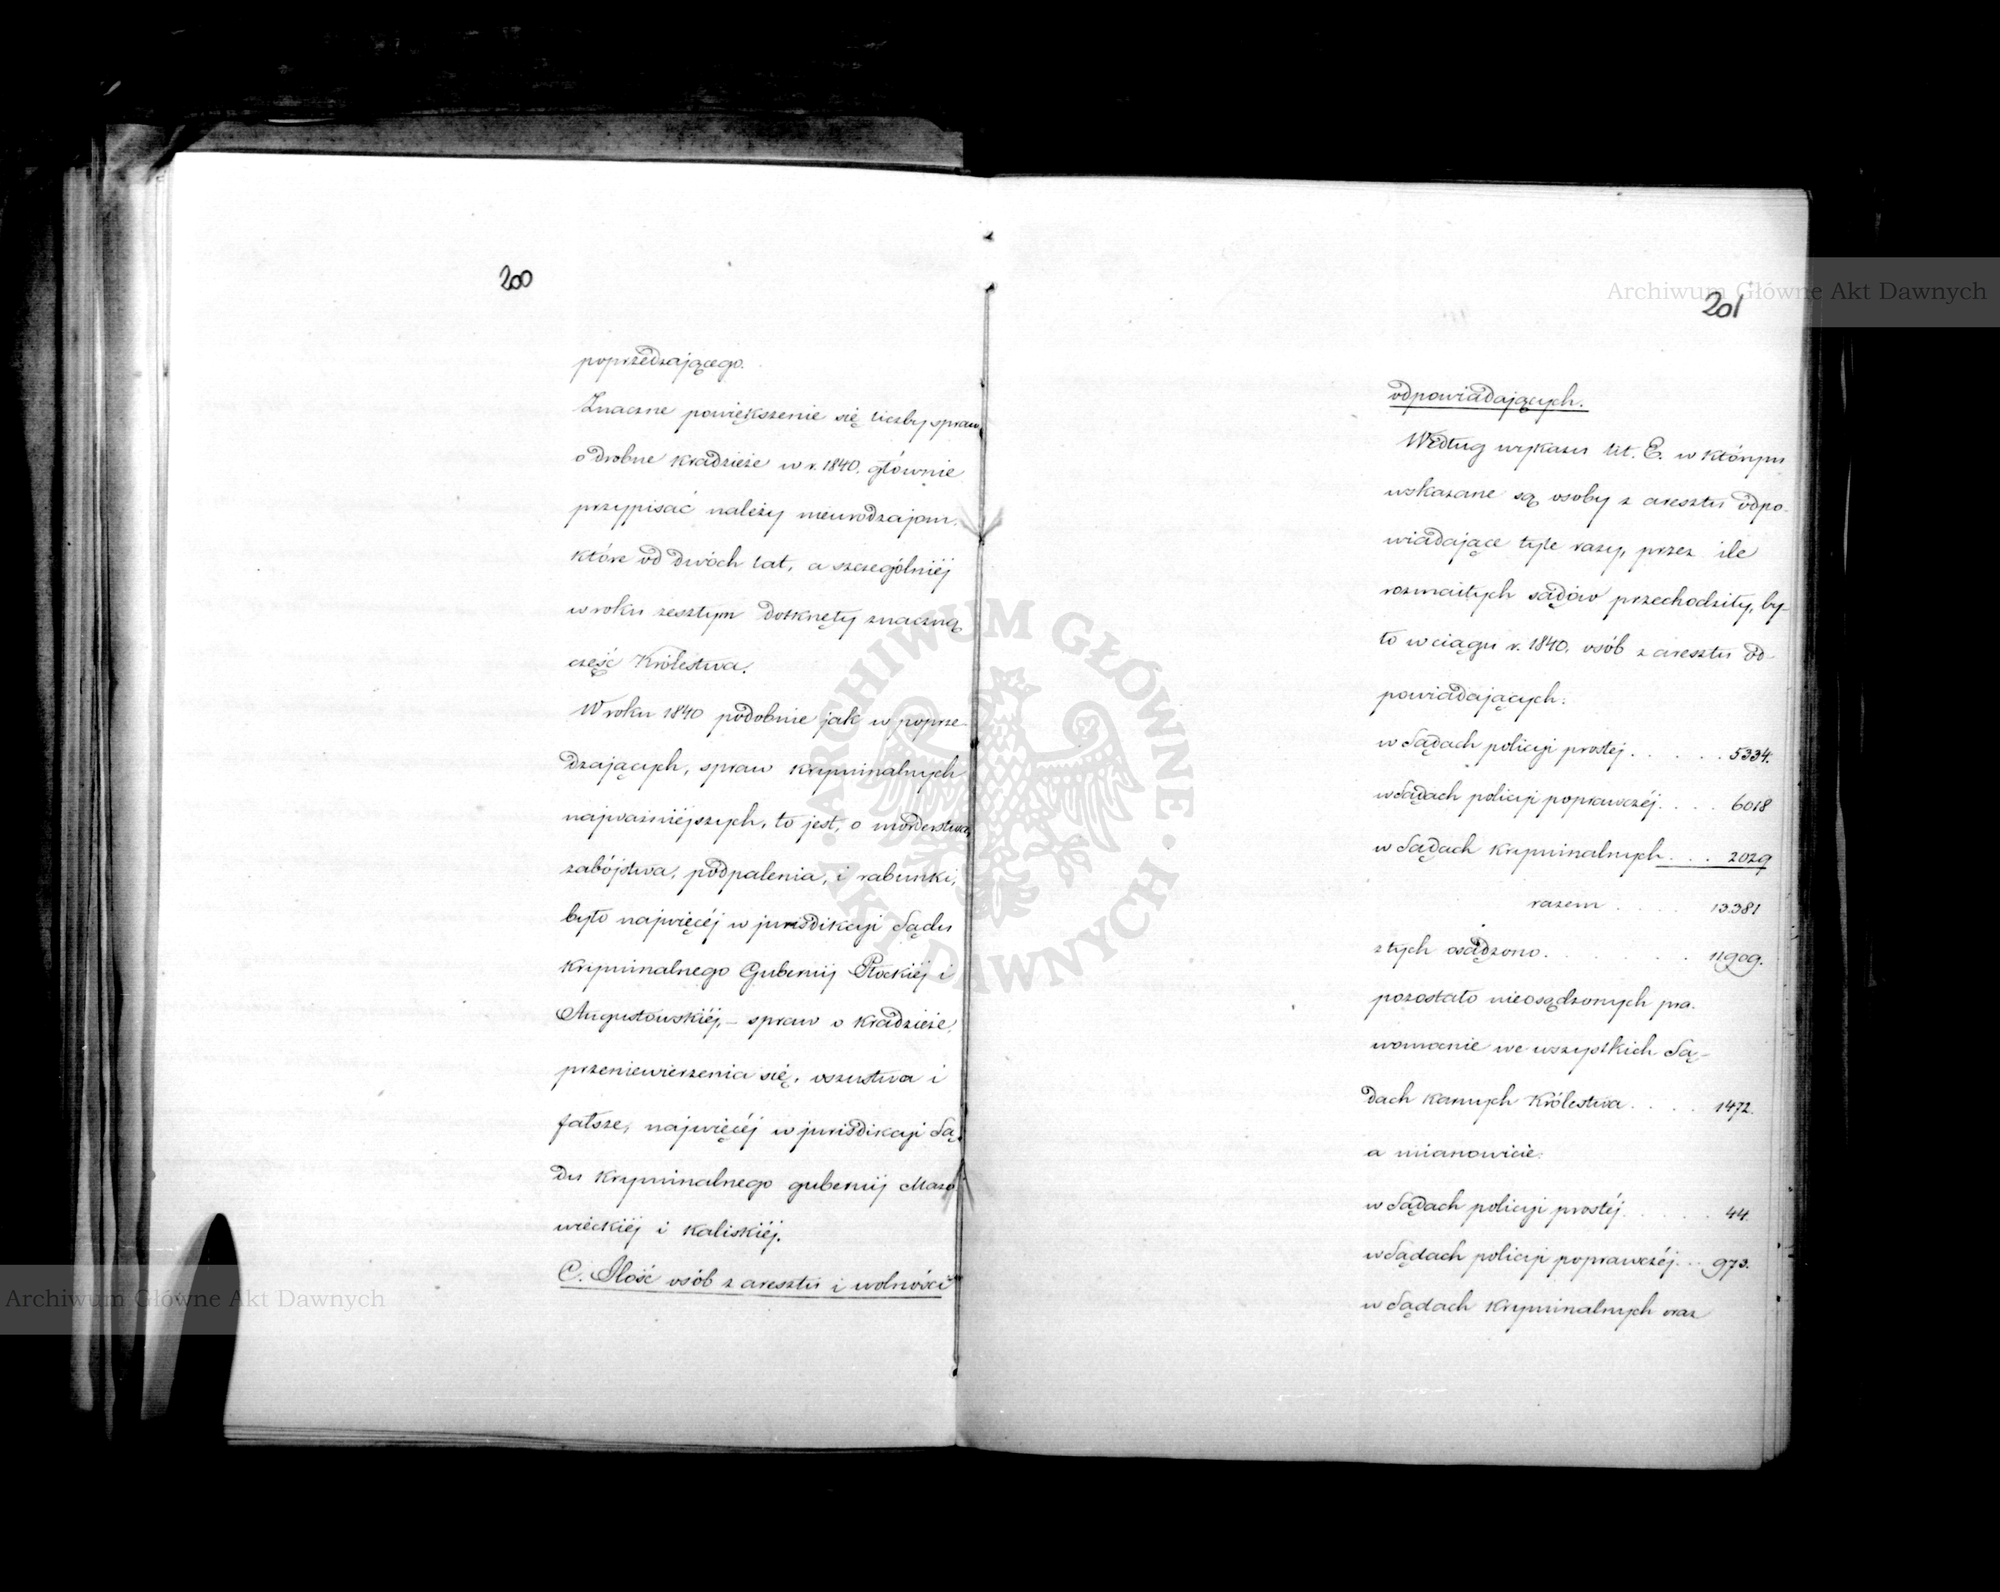 200
poprzedzającego.
Znaczne powiększenie się liczby spraw
o drobne kradzieże w r. 1840. głównie
przypisać należy nieurodzajom,
które od dwóch lat, a szczególniéj
w roku zeszłym dotknęły znaczną
część Królestwa.
W roku 1840 podobnie jak w poprze-
dzających, spraw kryminalnych
najważniéjszych, to jest, o morderstwa,
zabójstwa, podpalenia, i rabunki,
było najwięcéj w jurisdikcyi Sądu
Kryminalnego Gubernij Płockiéj i
Augustowskiéj, – spraw o kradzieże,
przeniewierzenia się, oszustwa i
fałsze, najwięcéj w jurisdikcyi Są-
du Kryminalnego gubernij Mazo
wieckiéj i Kaliskiéj.
C. Ilość osób z aresztu i wolności
201
odpowiadających.
Według wykazu lit. E. w którym
wskazane są osoby z aresztu odpo-
wiadające tyle razy, przez ile
rozmaitych sądów przechodziły, by-
ło w ciągu r. 1840. osób z aresztu od-
powiadających:
w Sądach policyi prostéj . . . . . . 5334.
w Sądach policyi poprawczéj . . . . 6018
w Sądach kryminalnych . . . 2029
razem . . . . . 13.381
z tych osądzono . . . . . . 11909.
pozostało nieosądzonych pra-
womocnie we wszystkich Są-
dach karnych Królestwa . . . . 1472.
a mianowicie:
w Sądach policyi prostéj . . . . . 44.
w Sądach policyi poprawczéj . . 973.
w Sądach Kryminalnych oraz
Archiwum Główne Akt Dawnych
Archiwum Główne Akt Dawnych
ARCHIWUM GŁÓWNE · AKT DAWNYCH ·